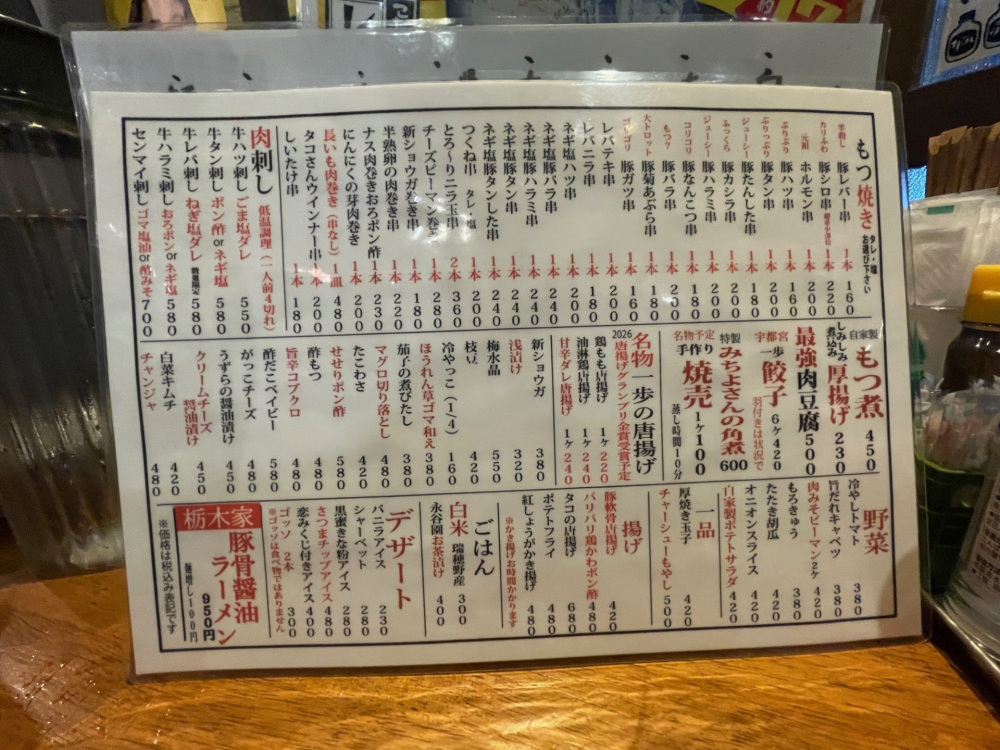 もつ焼き タレ・塩 お選び下さい
半殺し 豚レバー串 1本 160
カリふわ 豚シロ串 1本 220
元祖 ホルモン串 1本 200
ぷりぷり 豚ハツ串 1本 160
ぷりっぷり 豚タン串 1本 200
ジューシー 豚たんした串 1本 180
ふっくら 豚カシラ串 1本 200
ジューシー 豚ハラミ串 1本 200
コリコリ 豚なんこつ串 1本 180
もつ? 豚バラ串 1本 200
大トロット 豚菊あぶら串 1本 180
ゴリゴリ 豚ガツ串 1本 160
レバテキ串 1本 200
レバニラ串 1本 180
ネギ塩ハツ串 1本 200
ネギ塩豚バラ串 1本 240
ネギ塩豚ハラミ串 1本 240
ネギ塩豚タン串 1本 240
ネギ塩豚タンした串 1本 240
つくね串 タレ・塩 1本 200
とろ〜りニラ玉串 2本 360
チーズピーマン巻き 1本 280
新ショウガ巻き串 1本 180
半熟卵の肉巻き串 1本 200
ナス肉巻きおろポン酢 1本 230
にんにくの芽肉巻き 1本 200
長いも肉巻き(串なし) 一皿 480
タコさんウインナー串 1本 200
しいたけ串 1本 180
肉刺し 低温調理(一人前4切れ)
牛ハツ刺し ごま塩ダレ 550
牛タン刺し ポン酢orネギ塩 580
牛レバ刺し ねぎ塩ダレ 数量限定 580
牛ハラミ刺し おろポンorネギ塩 580
センマイ刺し ゴマ塩油or酢みそ 700
自家製 もつ煮 450
しみしみ煮込み 厚揚げ 230
最強肉豆腐 500
宇都宮 一歩 餃子 6ケ420 羽付きは状況で
特製 みちよさんの角煮 600
名物予定 手作り 焼売 1ケ100 蒸し時間10分
名物 一歩の唐揚げ
2026 唐揚げグランプリ金賞受賞予定
鶏もも唐揚げ 1ケ220
油淋鶏唐揚げ 1ケ240
甘辛ダレ唐揚げ 1ケ240
新ショウガ 380
浅漬け 320
梅水晶 550
枝豆 420
冷やっこ(1/4) 160
ほうれん草ゴマ和え 380
茄子の煮びたし 380
マグロ切り落とし 480
たこわさ 420
せせりポン酢 580
酢もつ 480
旨辛コブクロ 480
酢だこベイビー 580
がっこチーズ 480
うずらの醤油漬け 450
クリームチーズ醤油漬け 450
白菜キムチ 420
チャンジャ 480
野菜
冷やしトマト 380
旨だれキャベツ 380
肉みそピーマン2ケ 420
もろきゅう 380
たたき胡瓜 420
オニオンスライス 420
自家製ポテトサラダ 420
一品
厚焼き玉子 420
チャーシューもやし 500
揚げ
豚軟骨唐揚げ 420
パリパリ鶏かわポン酢 480
タコの唐揚げ 680
ポテトフライ 480
紅しょうがかき揚げ 480
※かき揚げお時間かかります
ごはん
白米 瑞穂野産 300
永谷園お茶漬け 400
デザート
バニラアイス 230
シャーベット 280
黒蜜きな粉アイス 280
さつまチップアイス 480
恋みくじ付きアイス 400
ゴッソ 2本 300
※ゴッソは食べ物ではありません
栃木家
豚骨醤油ラーメン
950円
麺増し100円
※価格は税込み表記です